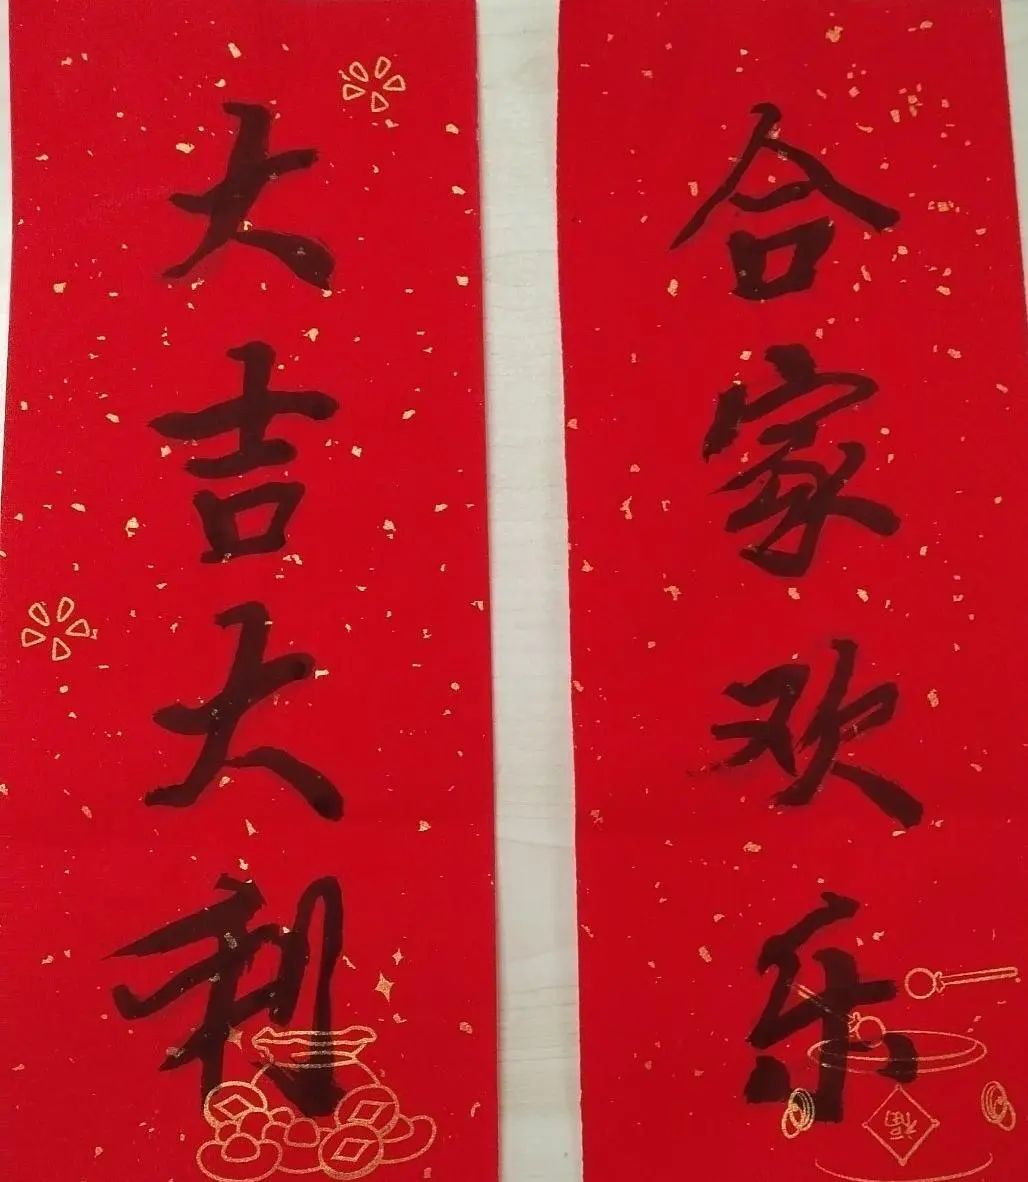 合家欢乐
大吉大利
福